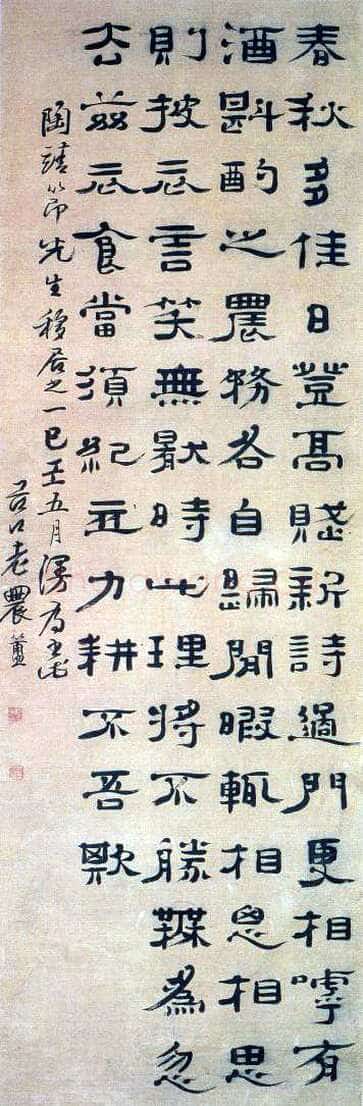 春秋多佳日登高賦新詩過門更相嘑有
酒斟酌之農務各自歸閒暇輒相思相思
則披衣言笑無猒時此理將不勝為忽
去茲衣食當須紀力耕不吾欺
陶靖節先生移居之一五月漫為書此
谷口老農簠